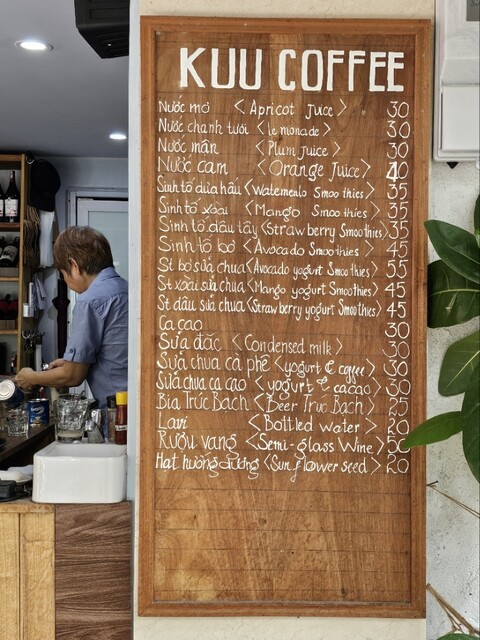 KUU COFFEE
Nước mơ <Apricot Juice> 30
Nước chanh tươi <lemonade> 30
Nước mận <Plum Juice> 30
Nước cam <Orange Juice> 40
Sinh tố dưa hấu <Watemenlo Smoothies> 35
Sinh tố xoài <Mango Smoothies> 35
Sinh tố dâu tây <Strawberry Smoothies> 35
Sinh tố bơ <Avocado Smoothies> 45
St bơ sữa chua <Avocado yogurt Smoothies> 55
St xoài sữa chua <Mango yogurt Smoothies> 45
St dâu sữa chua <Strawberry yogurt Smoothies> 45
Ca cao 30
Sữa đặc <Condensed milk> 30
Sữa chua cà phê <yogurt & coffee> 30
Sữa chua ca cao <yogurt & cacao> 30
Bia Trúc Bạch <Beer Trúc Bạch> 25
Lavi <Bottled water> 20
Rượu vang <Semi-glass Wine> 50
Hạt hướng dương <Sun flower seed> 20